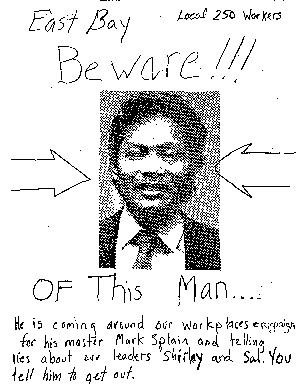 East Bay
Local 250 Workers
Beware!!!
OF This Man....
He is coming around our workplaces campaign
for his master Mark Splain and telling
lies about our leaders Shirley and Sal. You
tell him to get out.